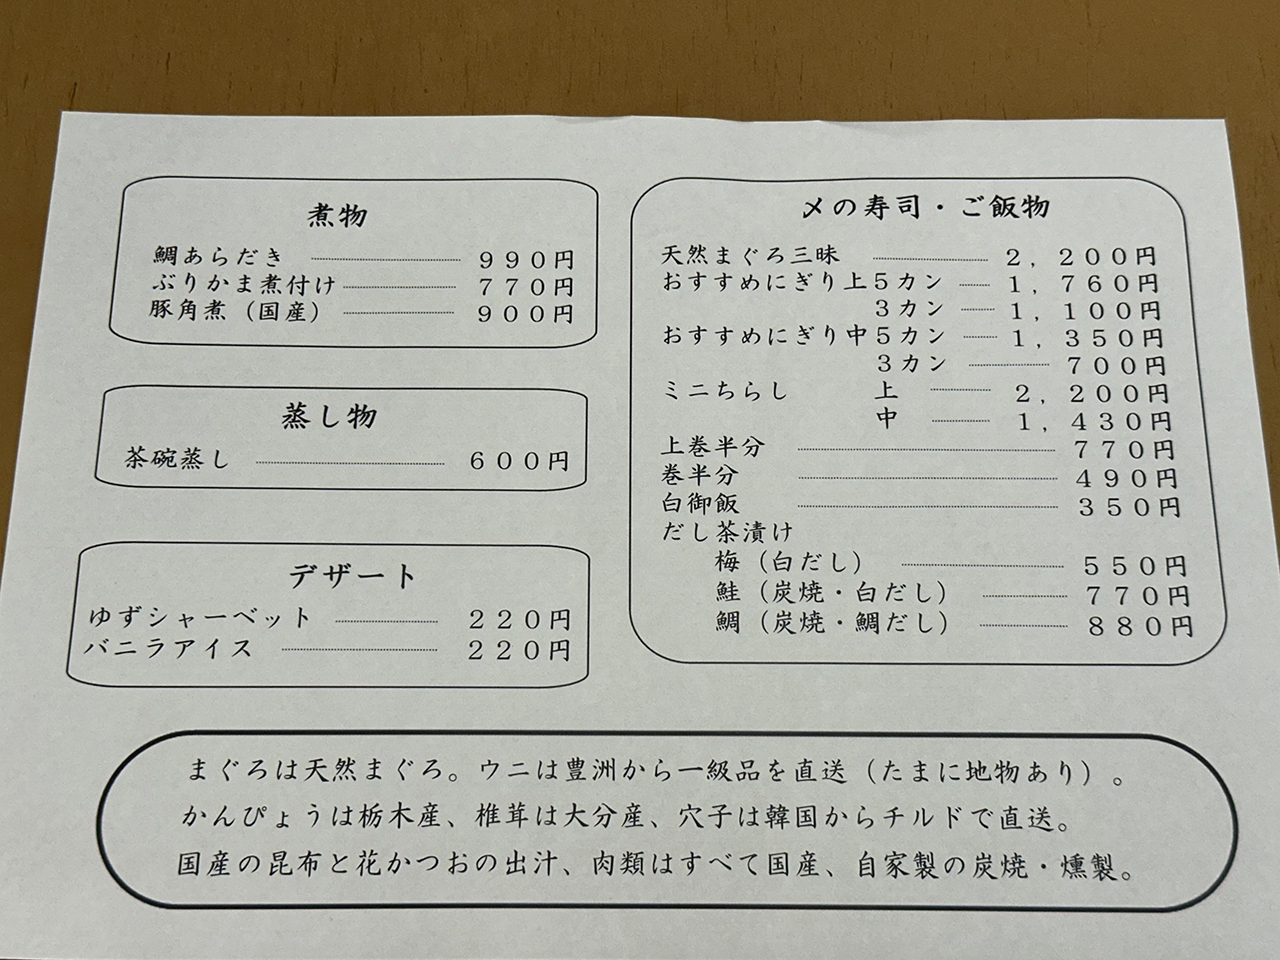 煮物
鯛あらだき 990円
ぶりかま煮付け 770円
豚角煮（国産） 900円
蒸し物
茶碗蒸し 600円
デザート
ゆずシャーベット 220円
バニラアイス 220円
〆の寿司・ご飯物
天然まぐろ三昧 2,200円
おすすめにぎり上5カン 1,760円
3カン 1,100円
おすすめにぎり中5カン 1,350円
3カン 700円
ミニちらし 上 2,200円
中 1,430円
上巻半分 770円
巻半分 490円
白御飯 350円
だし茶漬け
梅（白だし） 550円
鮭（炭焼・白だし） 770円
鯛（炭焼・鯛だし） 880円
まぐろは天然まぐろ。ウニは豊洲から一級品を直送（たまに地物あり）。
かんぴょうは栃木産、椎茸は大分産、穴子は韓国からチルドで直送。
国産の昆布と花かつおの出汁、肉類はすべて国産、自家製の炭焼・燻製。